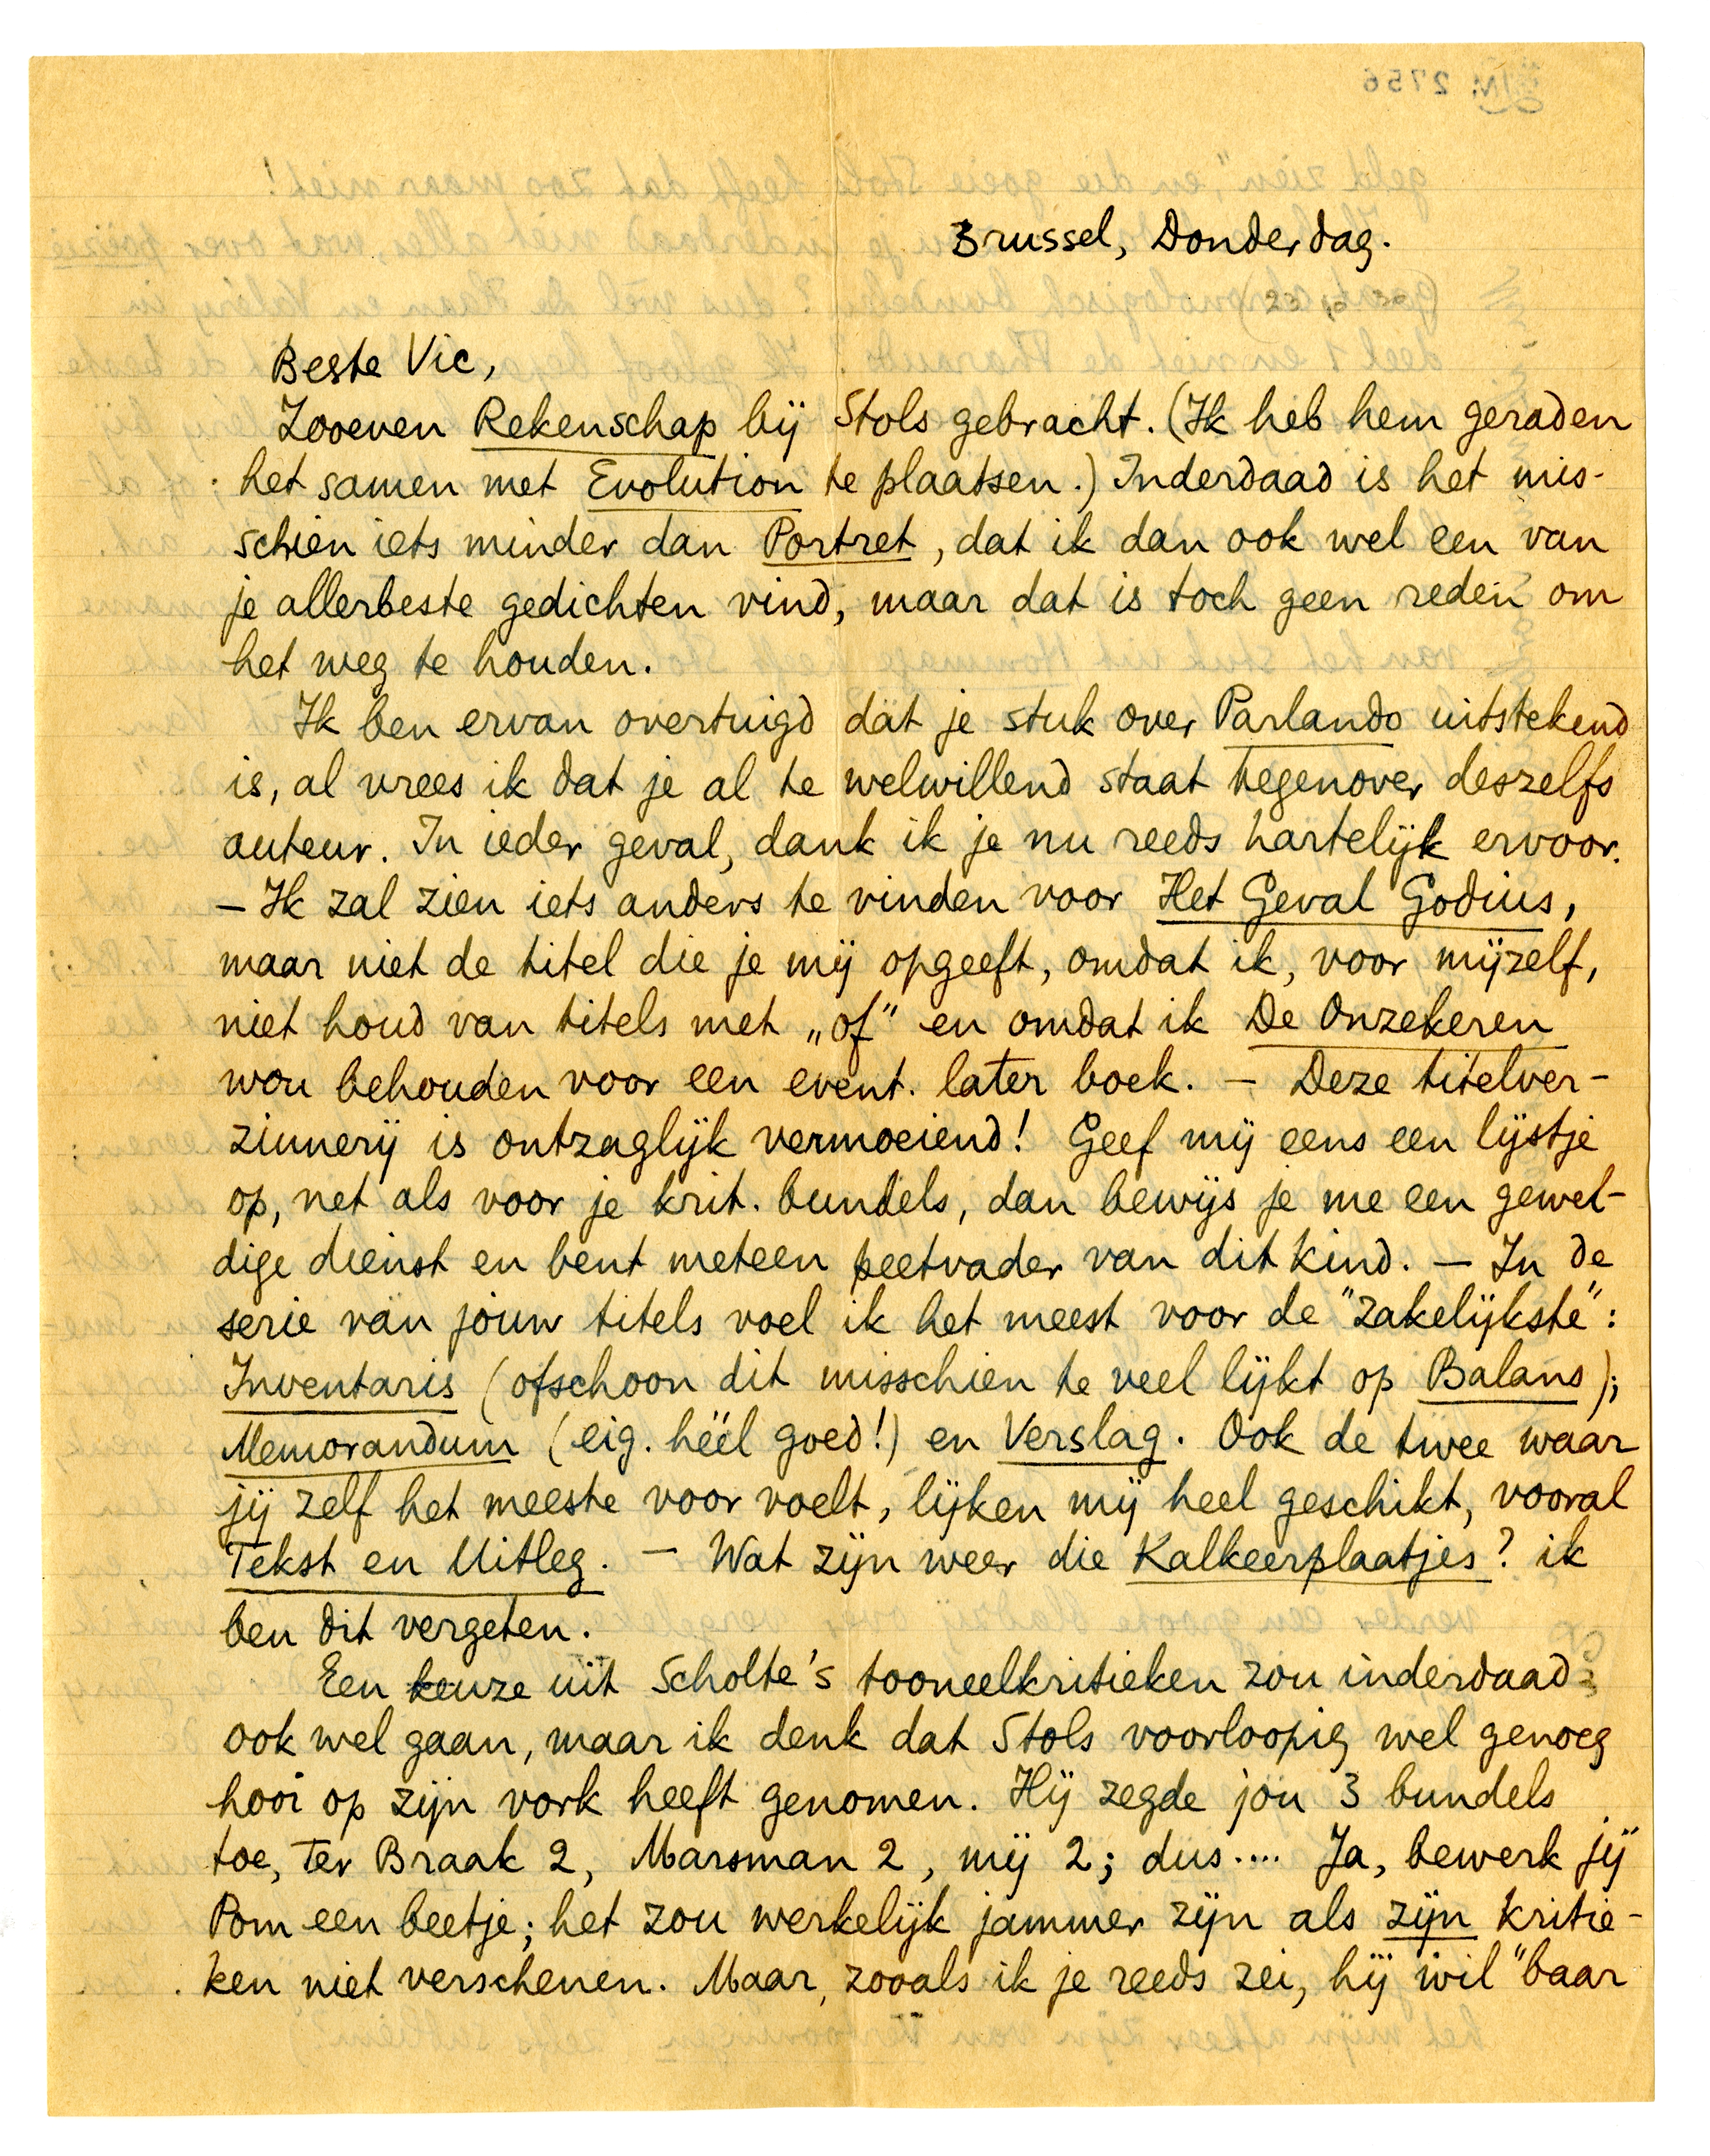 Brussel, Donderdag.
Beste Vic,
Zooeven Rekenschap bij Stols gebracht. (Ik heb hem geraden
het samen met Evolution te plaatsen.) Inderdaad is het mis-
schien iets minder dan Portret, dat ik dan ook wel een van
je allerbeste gedichten vind, maar dat is toch geen reden om
het weg te houden.
Ik ben ervan overtuigd dat je stuk over Parlando uitstekend
is, al vrees ik dat je al te welwillend staat tegenover deszelfs
auteur. In ieder geval, dank ik je nu reeds hartelijk ervoor.
– Ik zal zien iets anders te vinden voor Het Geval Godius,
maar niet de titel die je mij opgeeft, omdat ik, voor mijzelf,
niet houd van titels met „of" en omdat ik De Onzekeren
wou behouden voor een event. later boek. – Deze titelver-
zinnerij is ontzaglijk vermoeiend! Geef mij eens een lijstje
op, net als voor je krit. bundels, dan bewijs je me een gewel-
dige dienst en bent meteen peetvader van dit kind. – In de
serie van jouw titels voel ik het meest voor de "zakelijkste":
Inventaris (ofschoon dit misschien te veel lijkt op Balans);
Memorandum (eig. héél goed!) en Verslag. Ook de twee waar
jij zelf het meeste voor voelt, lijken mij heel geschikt, vooral
Tekst en Uitleg. – Wat zijn weer die Kalkeerplaatjes? ik
ben dit vergeten.
Een keuze uit Scholte's tooneelkritieken zou inderdaad
ook wel gaan, maar ik denk dat Stols voorloopig wel genoeg
hooi op zijn vork heeft genomen. Hij zegde jou 3 bundels
toe, Ter Braak 2, Marsman 2, mij 2; dus.... Ja, bewerk jij
Pom een beetje; het zou werkelijk jammer zijn als zijn kritie-
ken niet verschenen. Maar, zooals ik je reeds zei, hij wil "baar